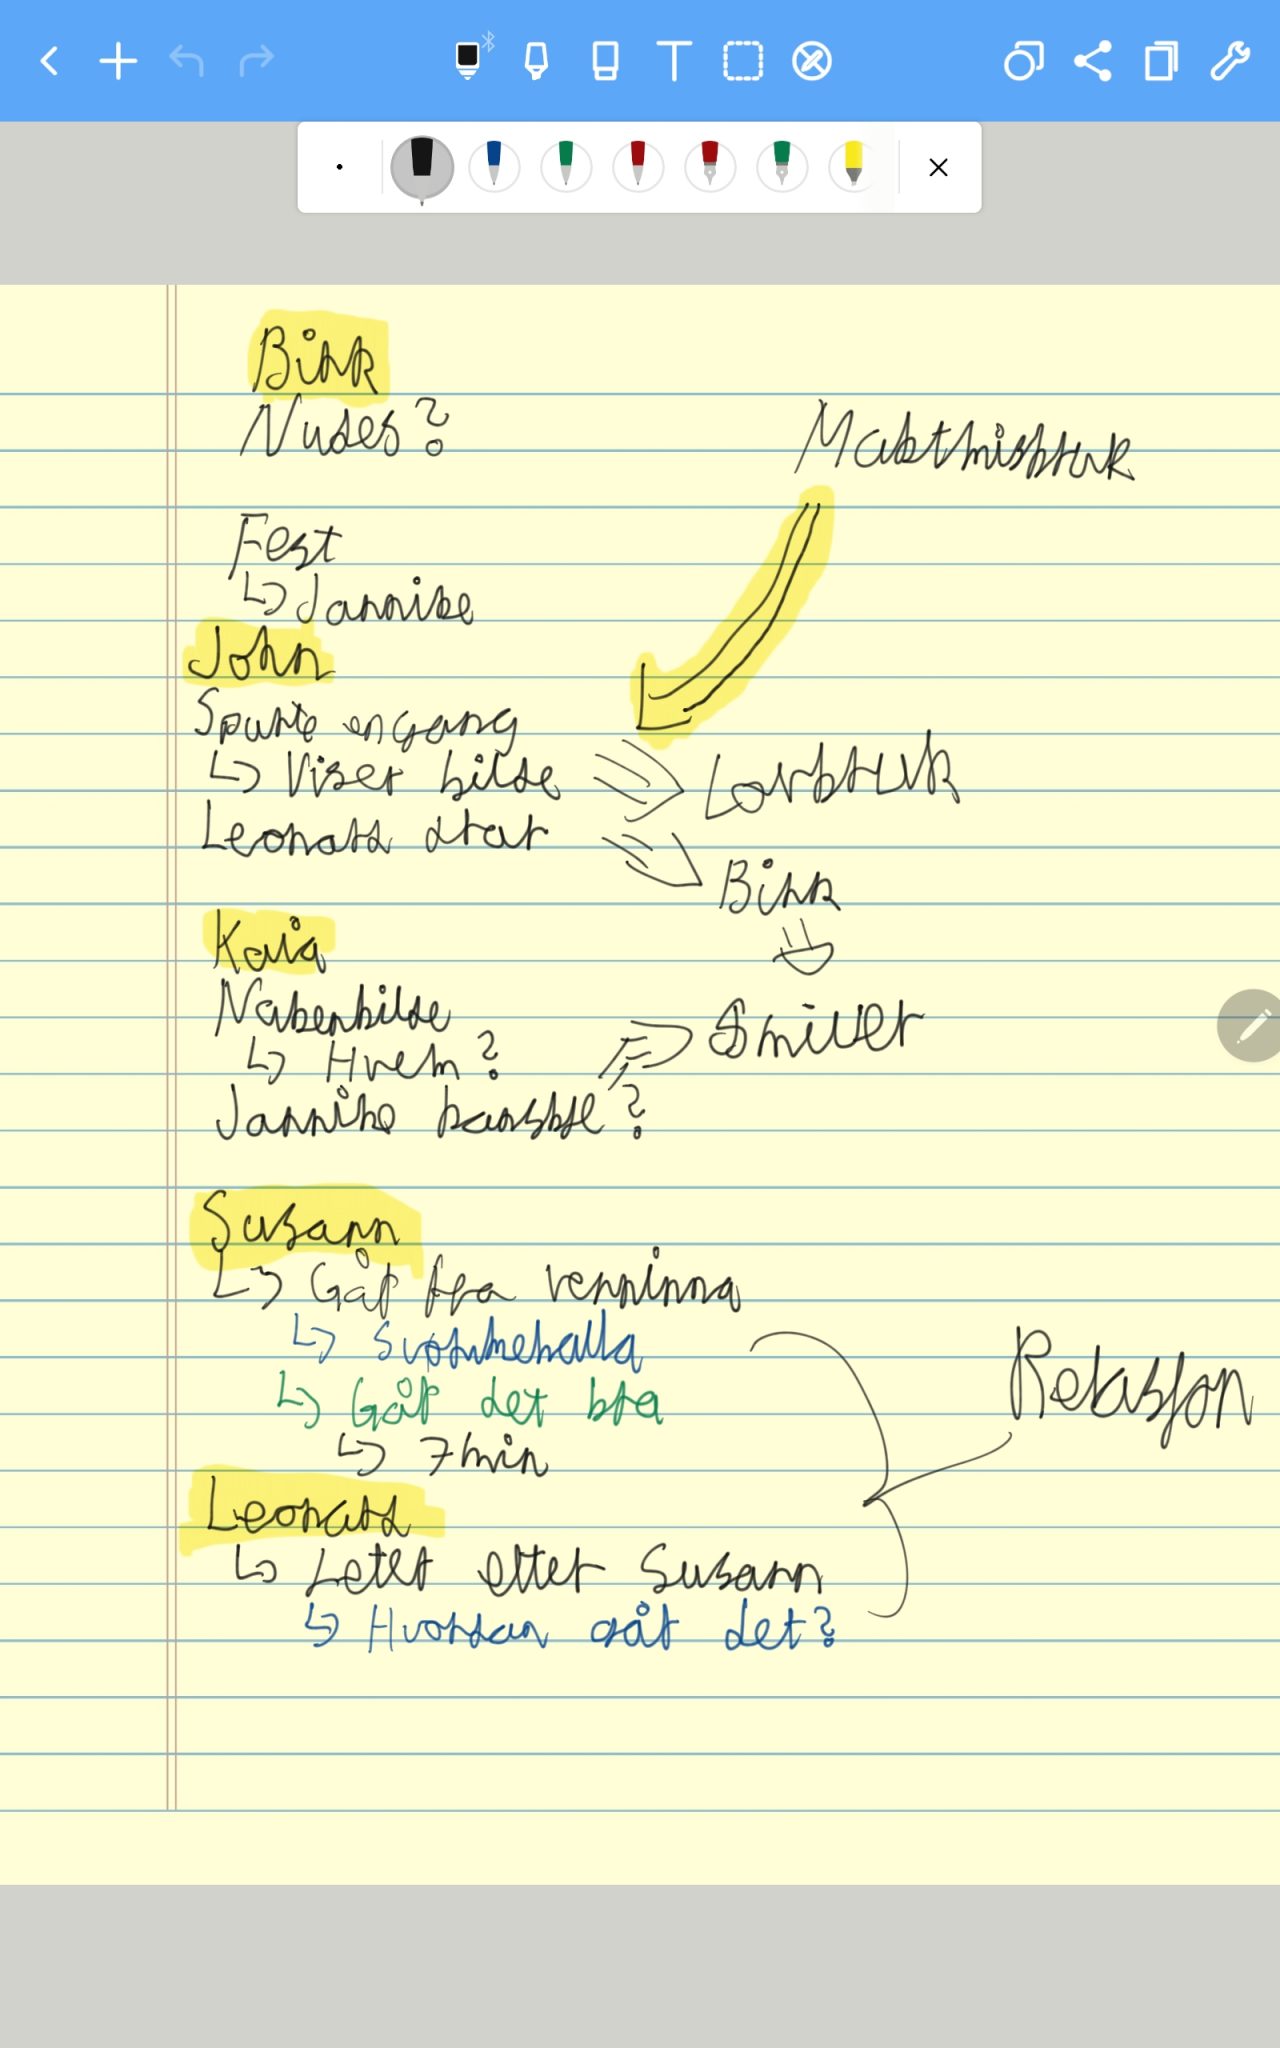 Birk
Nudes?
Maktmisbruk
Fest
↳ Jannike
John
Spurte engang
↳ Viser bilde
Lovbruk
Leonard drar
Birk
Kaia
Nakenbilde
Smiler
↳ Hvem?
Jannike kanskje?
Susann
↳ Går fra venninna
↳ Svømmehalla
↳ Går det bra
↳ 7 min
Relasjon
Leonard
↳ Leter etter Susann
↳ Hvordan går det?